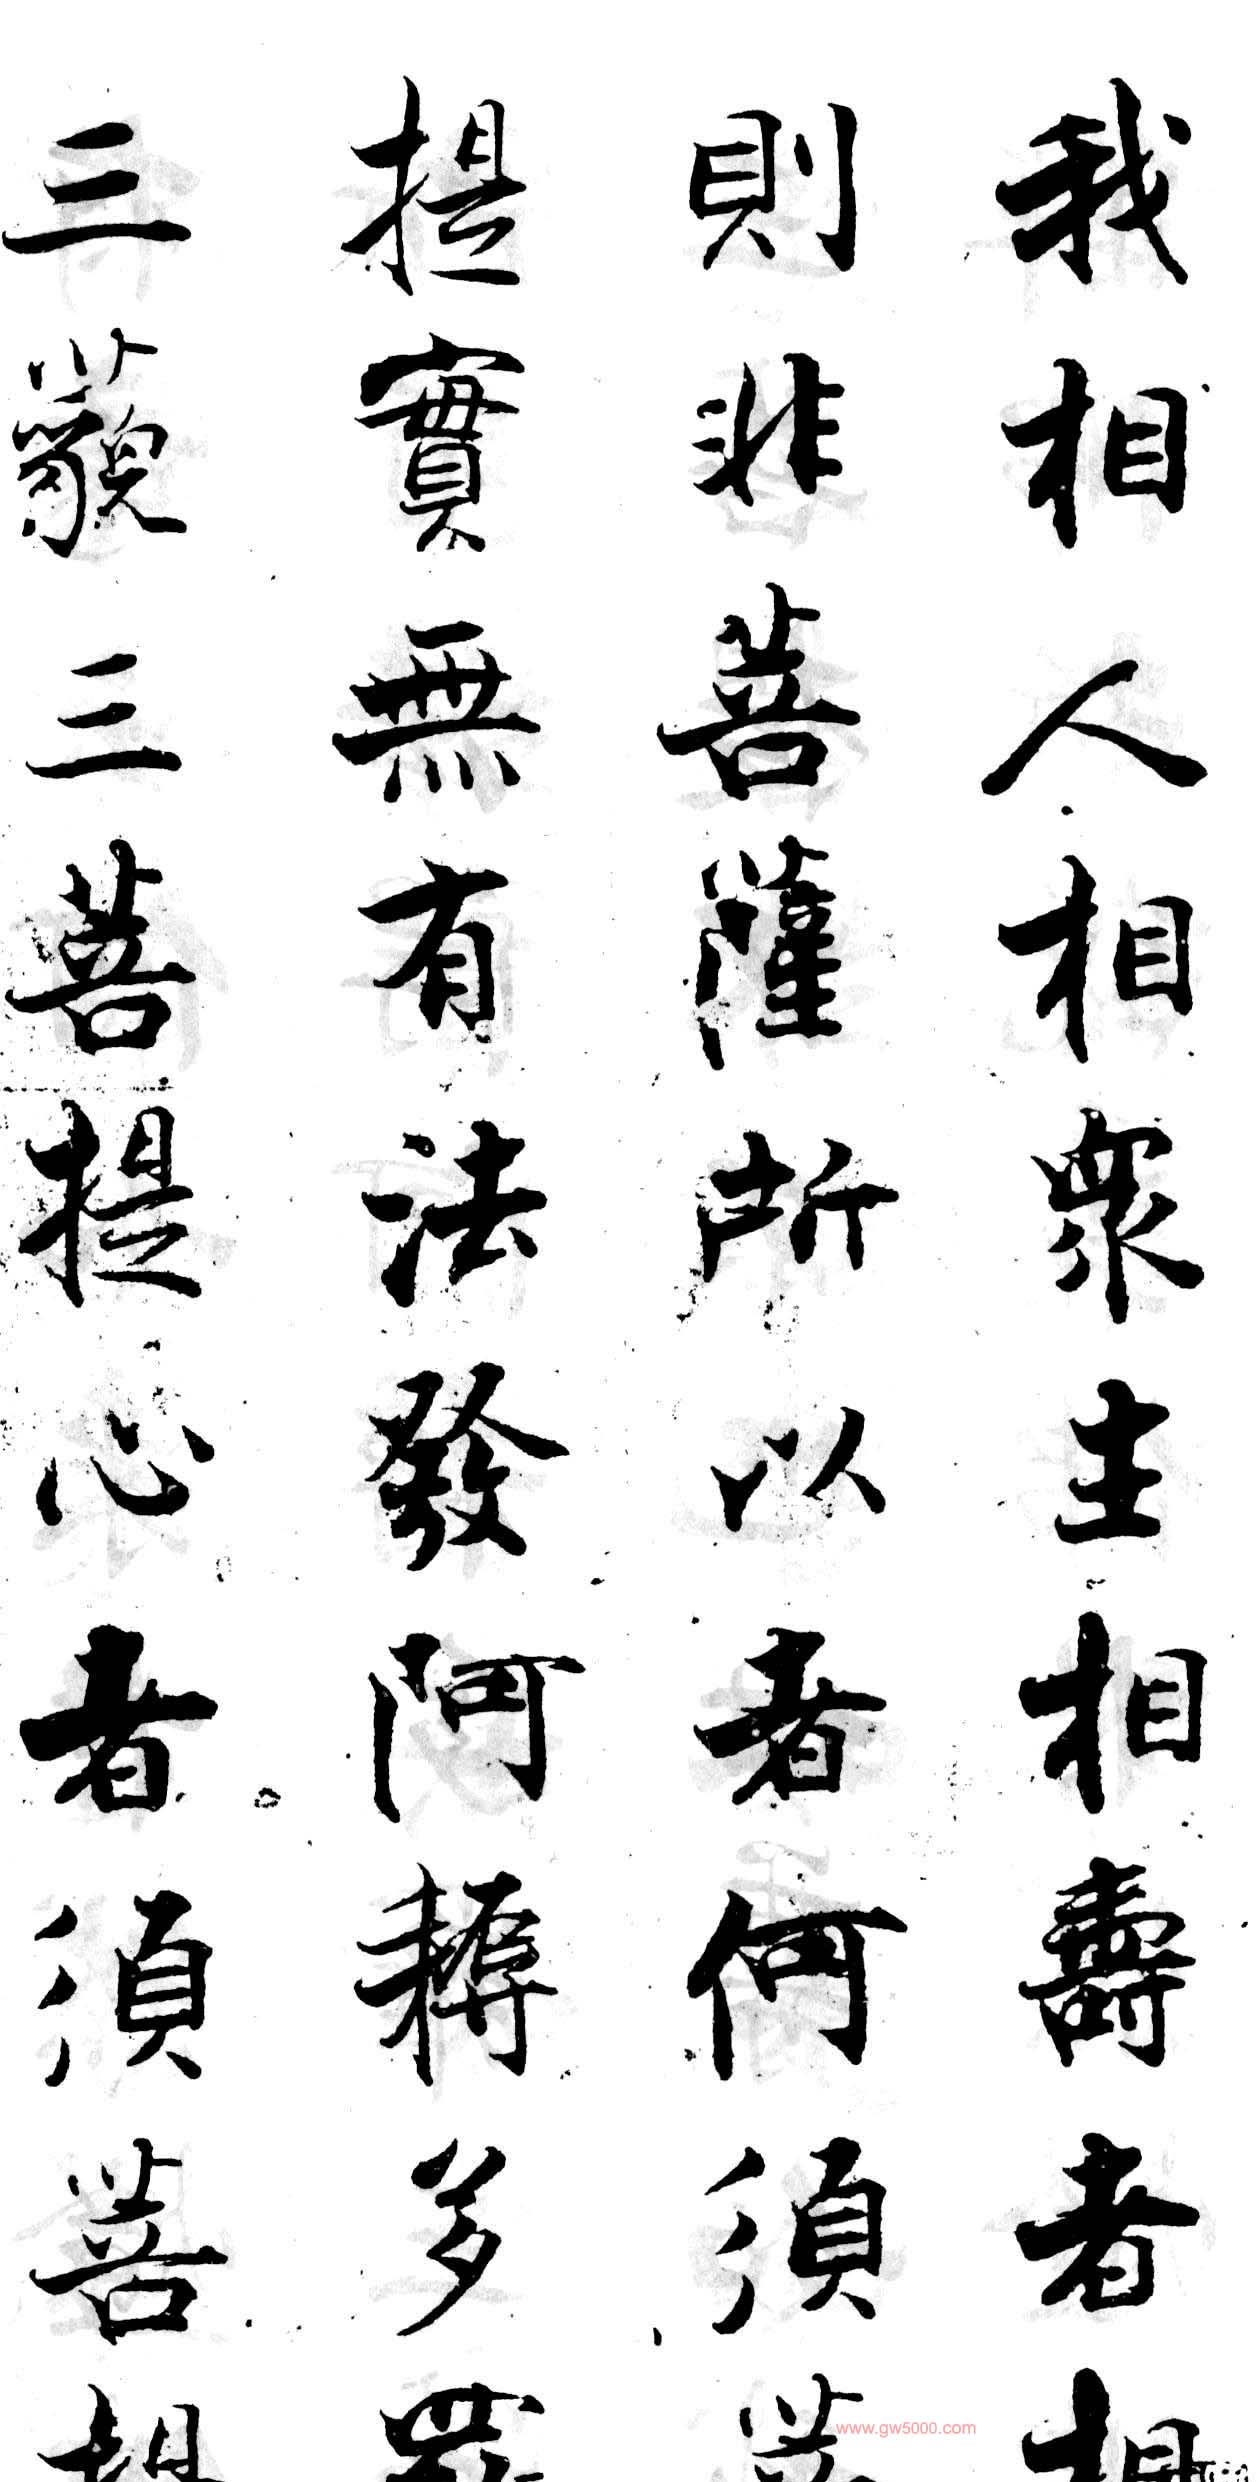 我相人相衆生相壽者相
則非菩薩所以者何須菩
提實無有法發阿耨多羅
三藐三菩提心者須菩提
www.gw5000.com